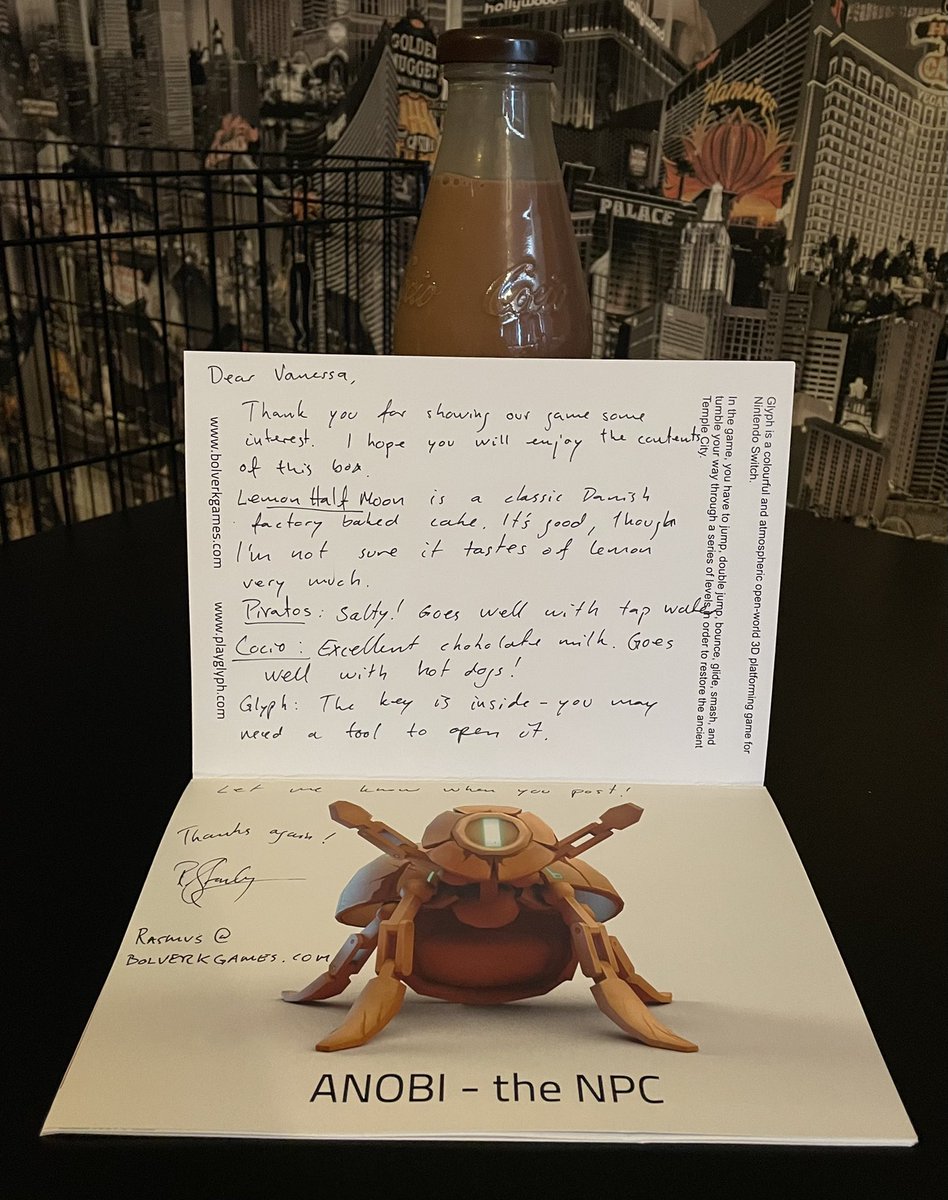 hollywood
GOLDEN
NUGGET
CASINO
Flamingo
PALACE
Cocio
Dear Vanessa,
Thank you for showing our game some
interest. I hope you will enjoy the contents
of this box.
Lemon Half Moon is a classic Danish
factory baked cake. It's good, though
I'm not sure it tastes of lemon
very much.
Piratos: Salty! Goes well with tap water
Cocio: Excellent chokolate milk. Goes
well with hot dogs!
Glyph: The key is inside - you may
need a tool to open it.
Let me know when you post!
Thanks again!
RASMUS @
BOLVERKGAMES.COM
www.bolverkgames.com
www.playglyph.com
Glyph is a colourful and atmospheric open-world 3D platforming game for
Nintendo Switch.
In the game, you have to jump, double jump, bounce, glide, smash, and
tumble your way through a series of levels in order to restore the ancient
Temple City.
ANOBI - the NPC